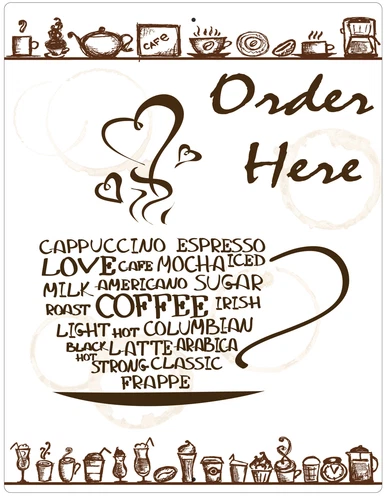 CAFE
Order
Here
CAPPUCCINO ESPRESSO
LOVE CAFE MOCHA ICED
MILK AMERICANO SUGAR
ROAST COFFEE IRISH
LIGHT HOT COLUMBIAN
BLACK LATTE ARABICA
HOT STRONG CLASSIC
FRAPPE